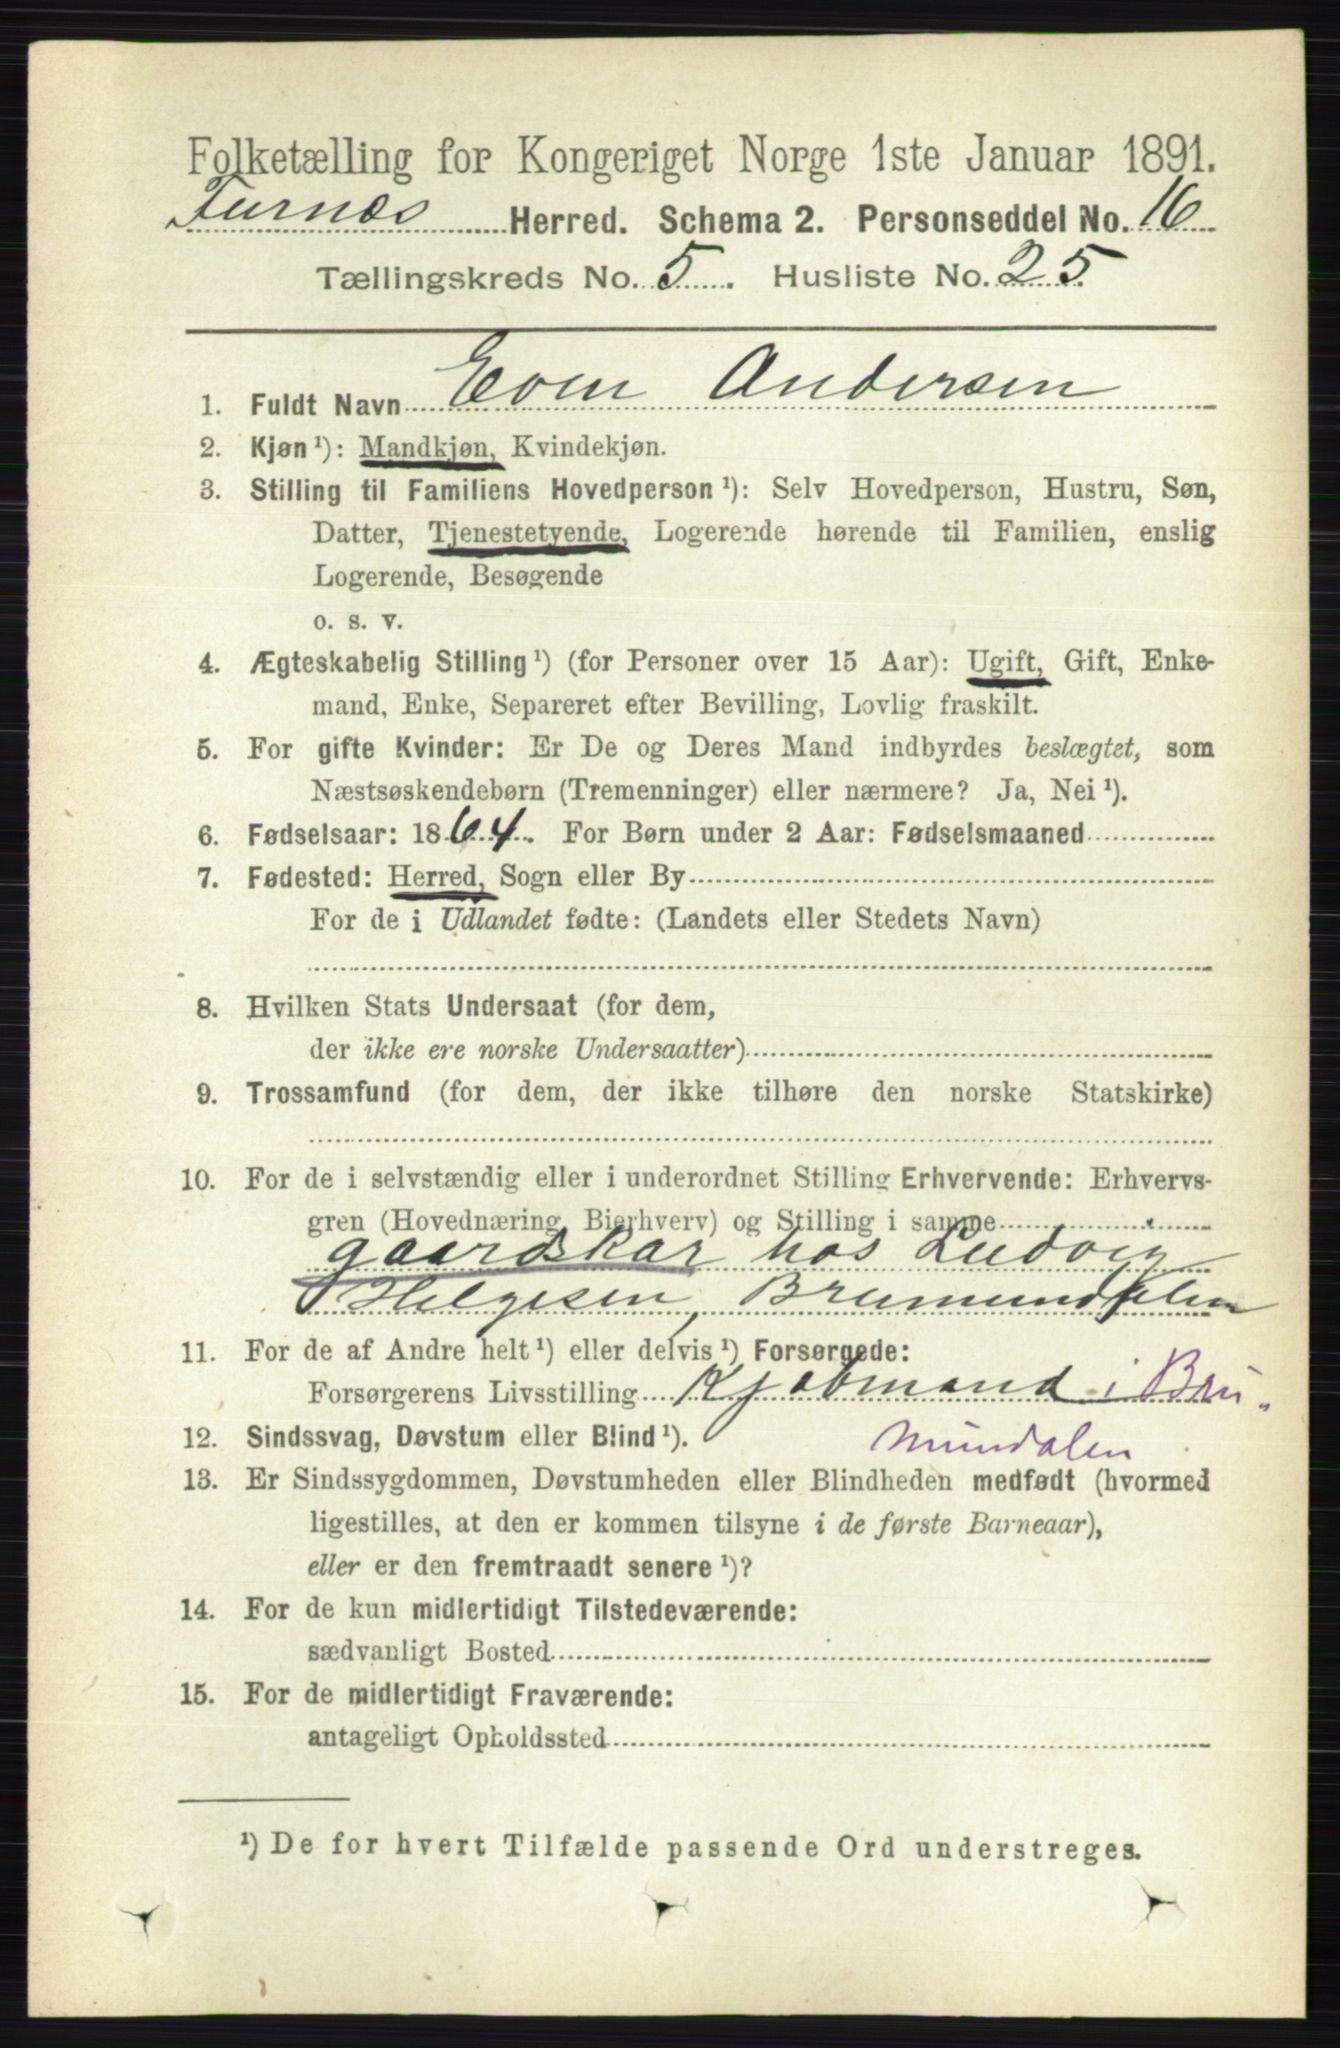 Folketælling for Kongeriget Norge 1ste Januar 1891.
Furnes Herred. Schema 2. Personseddel No. 16
Tællingskreds No. 5. Husliste No. 25
1. Fuldt Navn Even Andersen
2. Kjøn ¹): Mandkjøn, Kvindekjøn.
3. Stilling til Familiens Hovedperson ¹): Selv Hovedperson, Hustru, Søn,
Datter, Tjenestetyende, Logerende hørende til Familien, enslig
Logerende, Besøgende
o. s. v.
4. Ægteskabelig Stilling ¹) (for Personer over 15 Aar): Ugift, Gift, Enke-
mand, Enke, Separeret efter Bevilling, Lovlig fraskilt.
5. For gifte Kvinder: Er De og Deres Mand indbyrdes beslægtet, som
Næstsøskendebørn (Tremenninger) eller nærmere? Ja, Nei ¹).
6. Fødselsaar: 1864. For Børn under 2 Aar: Fødselsmaaned
7. Fødested: Herred, Sogn eller By
For de i Udlandet fødte: (Landets eller Stedets Navn)
8. Hvilken Stats Undersaat (for dem,
der ikke ere norske Undersaatter)
9. Trossamfund (for dem, der ikke tilhøre den norske Statskirke)
10. For de i selvstændig eller i underordnet Stilling Erhvervende: Erhvervs-
gren (Hovednæring, Bierhverv) og Stilling i samme
gaardskar hos Ludvig
Helgesen, Brumunddalen
11. For de af Andre helt ¹) eller delvis ¹) Forsørgede:
Forsørgerens Livsstilling Kjøbmand i Bru-
mundalen
12. Sindssvag, Døvstum eller Blind ¹).
13. Er Sindssygdommen, Døvstumheden eller Blindheden medfødt (hvormed
ligestilles, at den er kommen tilsyne i de første Barneaar),
eller er den fremtraadt senere ¹)?
14. For de kun midlertidigt Tilstedeværende:
sædvanligt Bosted
15. For de midlertidigt Fraværende:
antageligt Opholdssted
¹) De for hvert Tilfælde passende Ord understreges.